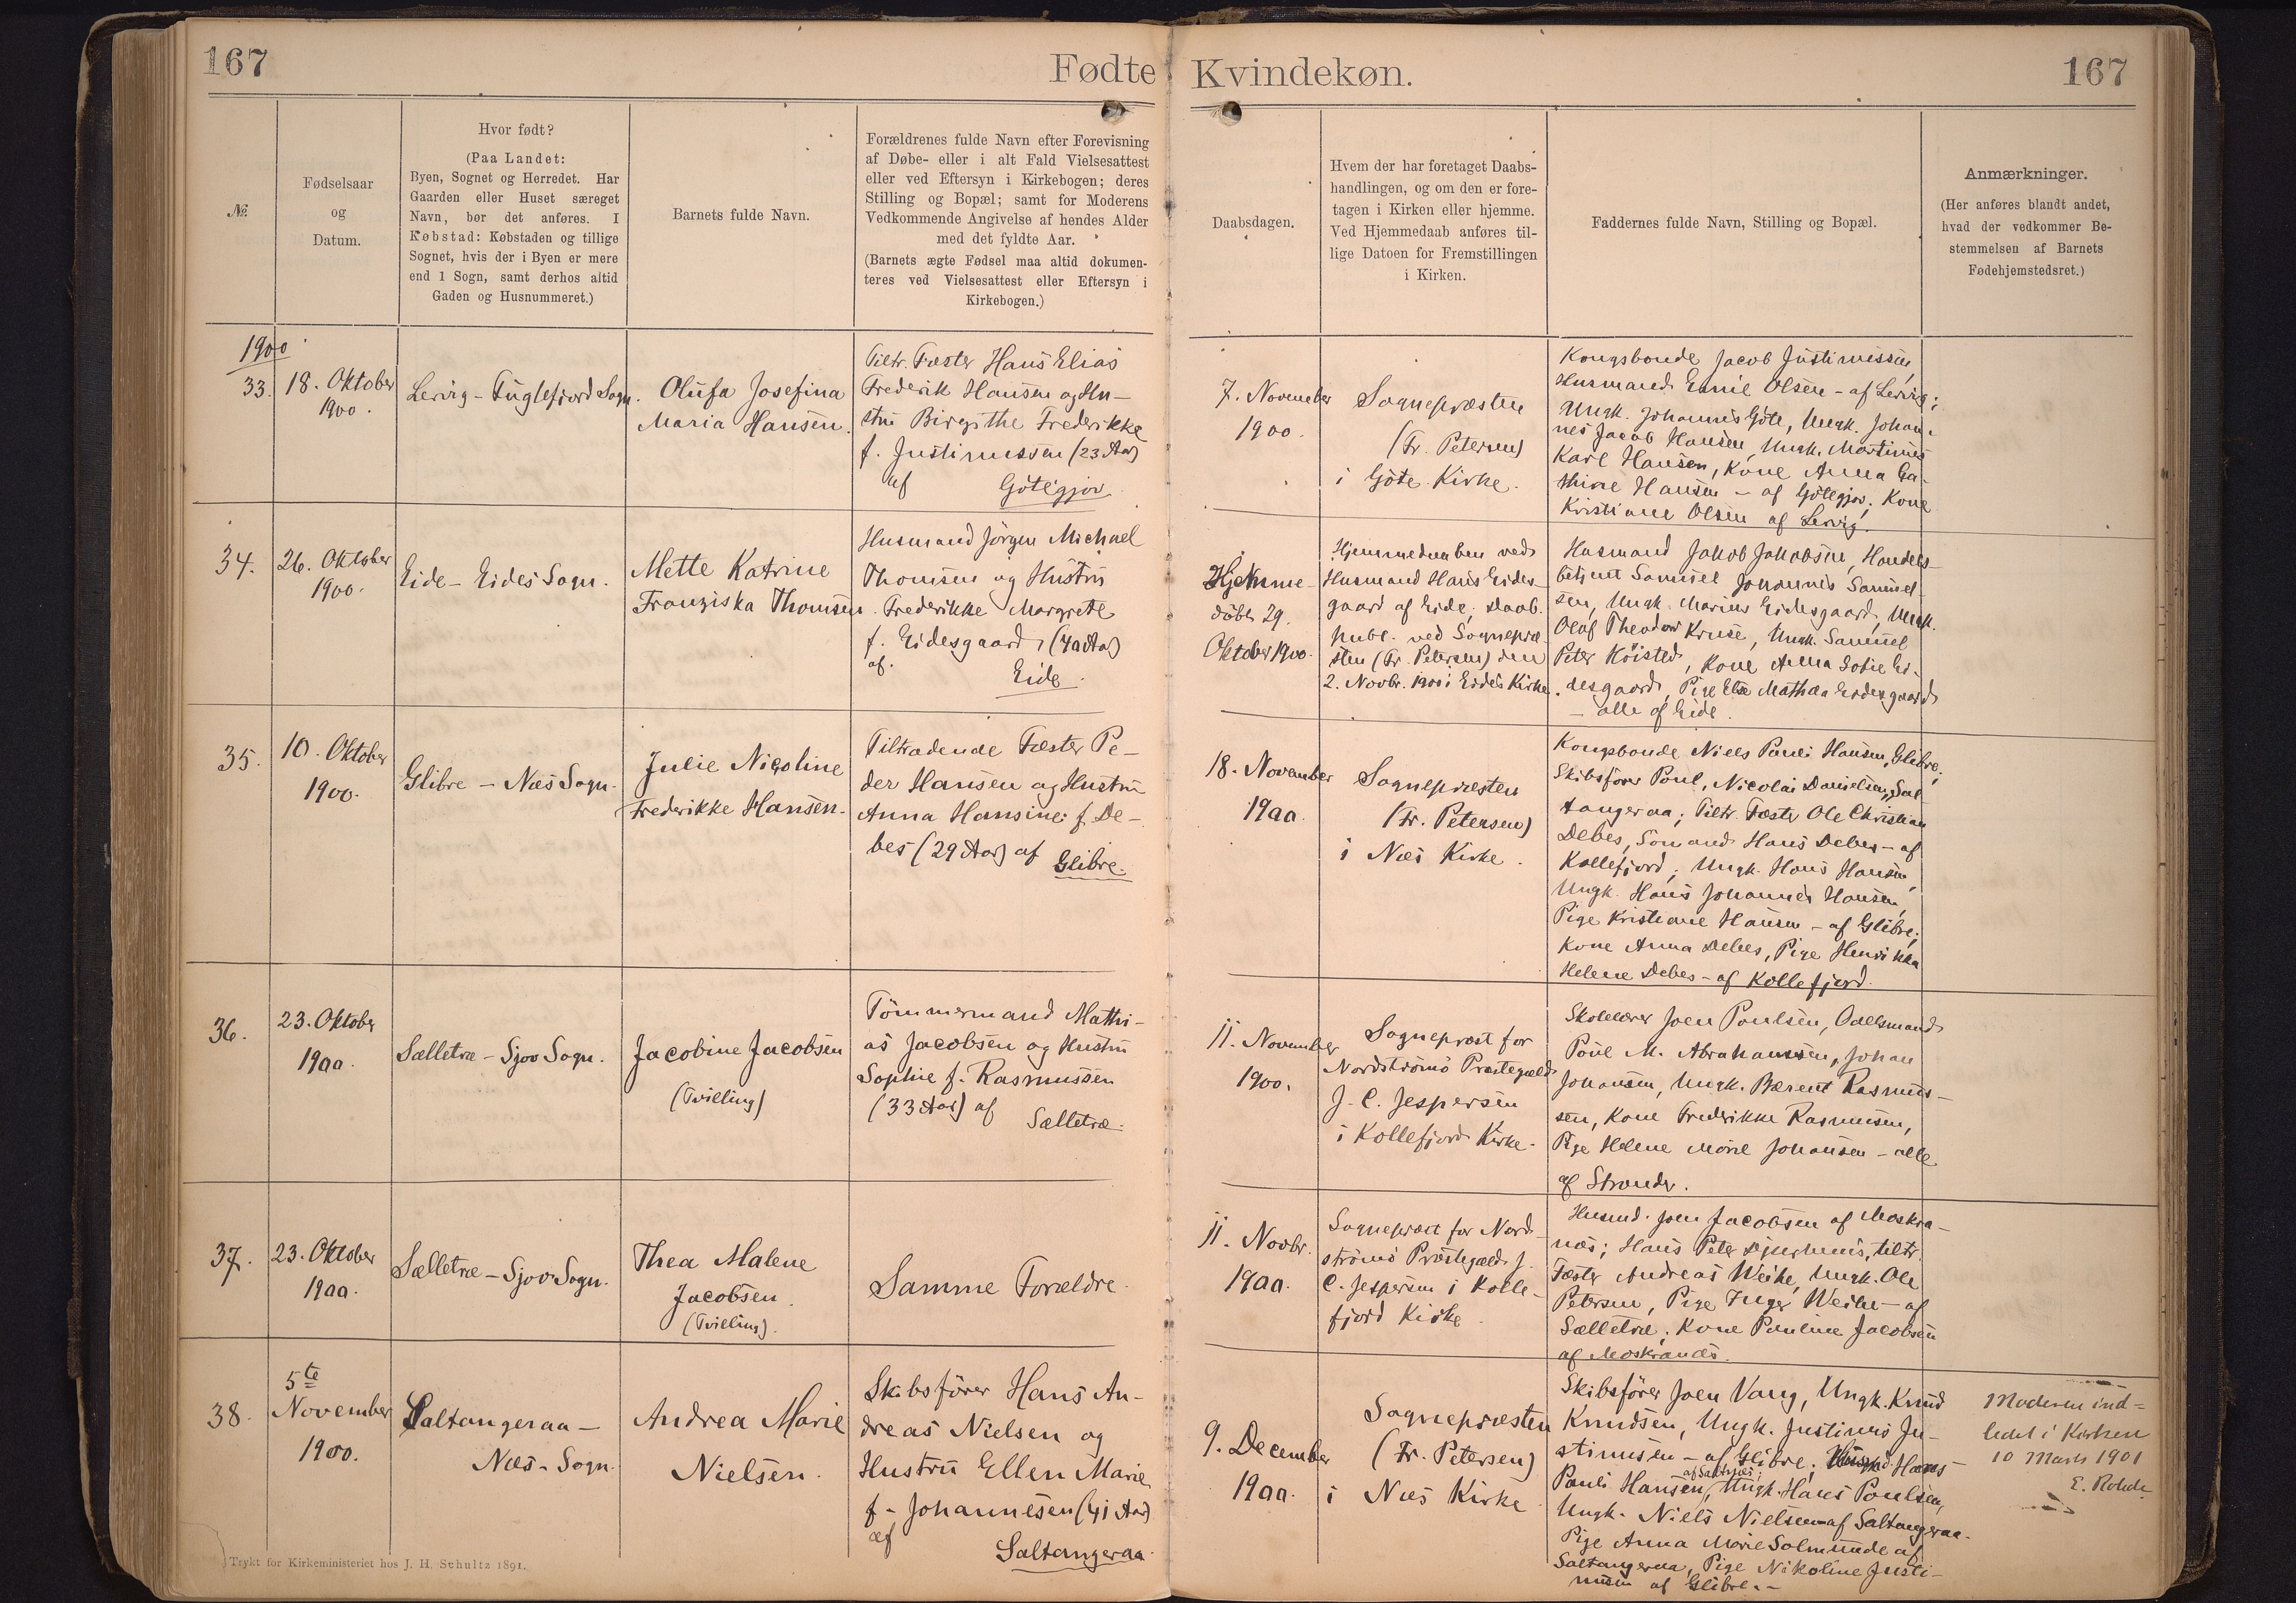 167
Fødte
Kvindekøn.
167
№
Fødselsaar
og
Datum.
Hvor født?
(Paa Landet:
Byen, Sognet og Herredet. Har
Gaarden eller Huset særeget
Navn, bør det anføres. I
Købstad: Købstaden og tillige
Sognet, hvis der i Byen er mere
end 1 Sogn, samt derhos altid
Gaden og Husnummeret.)
Barnets fulde Navn.
Forældrenes fulde Navn efter Forevisning
af Døbe- eller i alt Fald Vielsesattest
eller ved Eftersyn i Kirkebogen; deres
Stilling og Bopæl; samt for Moderens
Vedkommende Angivelse af hendes Alder
med det fyldte Aar.
(Barnets ægte Fødsel maa altid dokumen-
teres ved Vielsesattest eller Eftersyn i
Kirkebogen.)
Daabsdagen.
Hvem der har foretaget Daabs-
handlingen, og om den er fore-
tagen i Kirken eller hjemme.
Ved Hjemmedaab anføres til-
lige Datoen for Fremstillingen
i Kirken.
Faddernes fulde Navn, Stilling og Bopæl.
Anmærkninger.
(Her anføres blandt andet,
hvad der vedkommer Be-
stemmelsen af Barnets
Fødehjemstedsret.)
1900
33.
18. Oktober
1900.
Lervig - Fuglefjord Sogn.
Olufa Josefina
Maria Hansen.
Tiltr. Fæster Hans Elias
Frederik Hansen og Hu-
stru Birgithe Frederikke
f. Justinussen (23 Aar)
af Götegjov
7. November
1900.
Sognepræsten
(Fr. Petersen)
i Göte Kirke.
Kongsbonde Jacob Justinussen,
Husmand Emil Olsen - af Lervig;
Ungk. Johannes Göte, Ungk. Johan-
nes Jacob Hansen, Ungk. Martinus
Karl Hansen, Kone Anna Ca-
thine Hansen - af Götegjov; Kone
Kristiane Olsen af Lervig.
34.
26. Oktober
1900.
Eide - Eides Sogn.
Mette Katrine
Franziska Thomsen.
Husmand Jörgen Michael
Thomsen og Hustru
Frederikke Margrete
f. Eidesgaard (40 Aar)
af.
Eide.
Hjemme-
döbt 29.
Oktober 1900.
Hjemmedaaben ved
Husmand Hans Eides-
gaard af Eide; Daab.
publ. ved Sognepræ-
sten (Fr. Petersen) den
2. Novbr. 1900 i Eides Kirke.
Husmand Jakob Jakobsen, Handels-
betjent Samuel Johannes Samuel-
sen, Ungk. Marius Eidesgaard, Ungk.
Olaf Theodor Kruse, Ungk. Samuel
Peter Köisted, Kone Anna Sofie Ei-
desgaard, Pige Else Mathea Eidesgaard
- alle af Eide.
35.
10. Oktober
1900.
Glibre - Næs Sogn.
Julie Nicoline
Frederikke Hansen.
Tiltrædende Fæster Pe-
der Hansen og Hustru
Anna Hansine f. De-
bes (29 Aar) af Glibre.
18. November
1900.
Sognepræsten
(Fr. Petersen)
i Næs Kirke.
Kongsbonde Niels Pauli Hansen, Glibre;
Skibsförer Poul, Nicolai Danielsen, Sal-
tangeraa; Tiltr. Fæster Ole Christian
Debes, Sömand Hans Debes - af
Kollefjord; Ungk. Hans Hansen,
Ungk. Hans Johannes Hansen,
Pige Kristiane Hansen - af Glibre;
Kone Anna Debes, Pige Henrikka
Helene Debes - af Kollefjord.
36.
23. Oktober
1900.
Sælletræ - Sjov Sogn.
Jacobine Jacobsen
(Tvilling)
Tömmermand Mathi-
as Jacobsen og Hustru
Sophie f. Rasmussen
(33 Aar) af Sælletræ.
11. November
1900.
Sognepræst for
Nordströmö Præstegæld
J. C. Jespersen
i Kollefjord Kirke.
Skolelærer Joen Poulsen, Odelsmand
Poul M. Abrahamsen, Johan
Johansen, Ungk. Bærent Rasmus-
sen, Kone Frederikke Rasmussen,
Pige Helene Marie Johansen - alle
af Strander.
37.
23. Oktober
1900.
Sælletræ - Sjov Sogn.
Thea Malene
Jacobsen.
(Tvilling).
Samme Forældre.
11. Novbr.
1900.
Sognepræst for Nord-
strömö Præstegæld J.
C. Jespersen i Kolle-
fjord Kirke.
Husmd. Joen Jacobsen af Moskra-
næs; Hans Peter Djurhuus, tiltr.
Fæster Andreas Weihe, Ungk. Ole
Petersen, Pige Inger Weihe - af
Sælletræ; Kone Pauline Jacobsen
af Moskranæs.
38.
5te
November
1900.
Saltangeraa -
Næs - Sogn.
Andrea Marie
Nielsen.
Skibsförer Hans An-
dreas Nielsen og
Hustru Ellen Marie
f. Johannesen (41 Aar)
af
Saltangeraa.
9. December
1900.
Sognepræsten
(Fr. Petersen)
i Næs Kirke.
Skibsförer Joen Vang, Ungk. Knud
Knudsen, Ungk. Justinus Ju-
stinusen - af Glibre; Hans
Pauli Hansen, af Saltnæs; Ungk. Hans Poulsen,
Ungk. Niels Nielsen - af Saltangeraa.
Pige Anna Marie Solmunde af
Saltangeraa, Pige Nikoline Justi-
nusen af Glibre. -
Moderen ind-
ledet i Kirken
10 Marts 1901
E. Rohde
Trykt for Kirkeministeriet hos J. H. Schultz 1891.